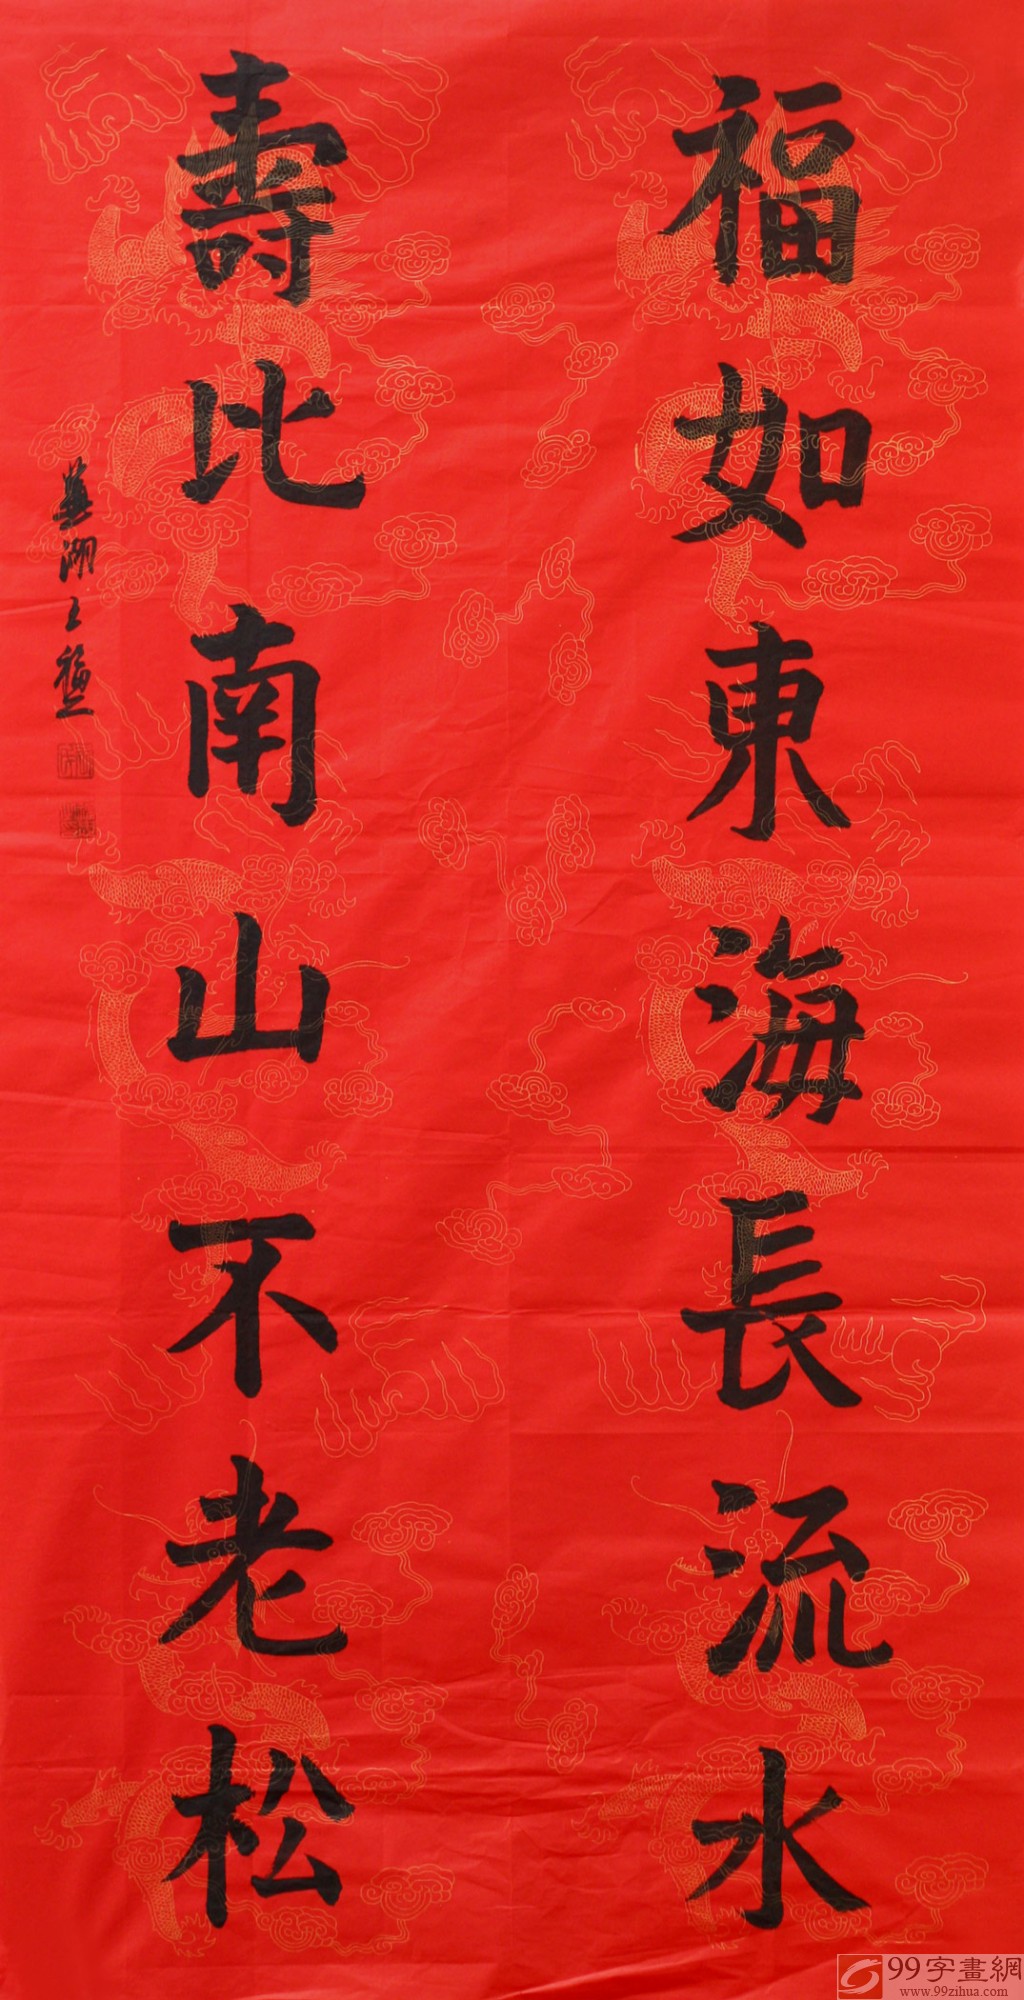 福如東海長流水
壽比南山不老松
蕪湖王
99字畫網
www.99zihua.com